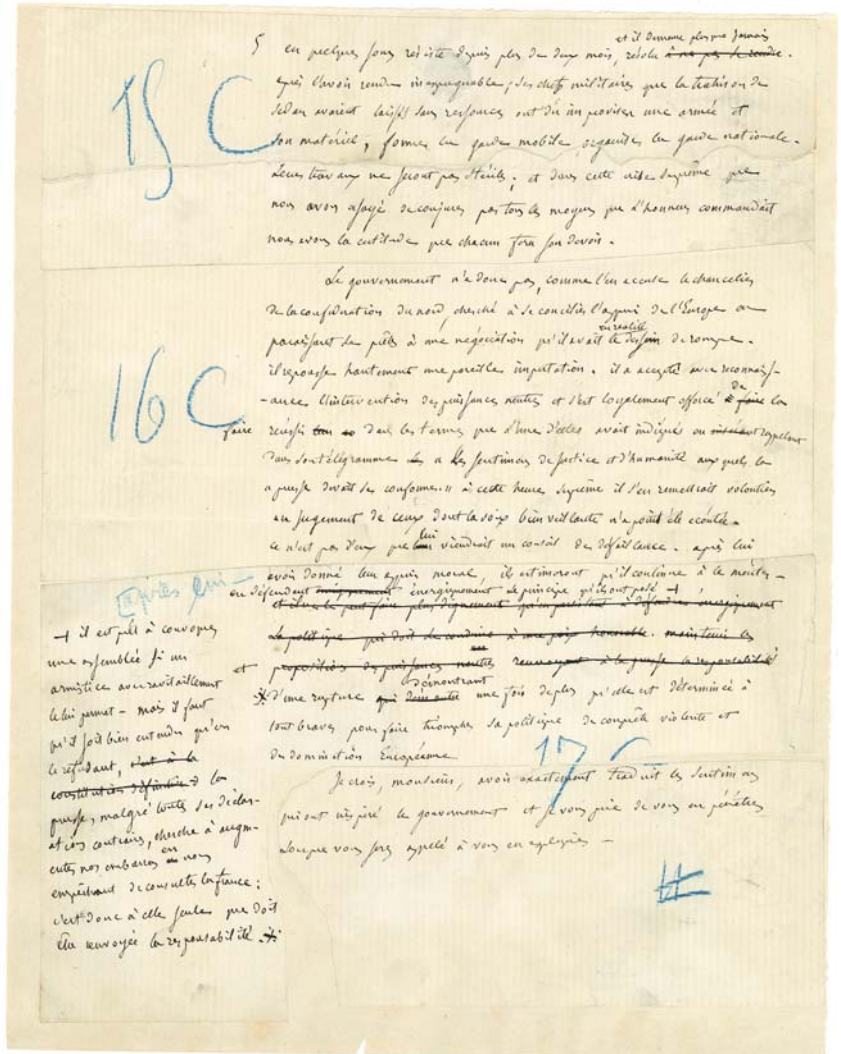 et il demeure plus que jamais
5 en quelques jours résiste depuis plus de deux mois, résolu à ne pas se rendre.
après l'avoir rendu inexpugnable ; ses chefs militaires que la trahison de
Sedan avaient laissés sans ressources ont dû improviser une armée et
son matériel, former la garde mobile, organiser la garde nationale.
Leurs travaux ne seront pas stériles ; et dans cette crise suprême que
nous avons essayé de conjurer par tous les moyens que l'honneur commandait
nous avons la certitude que chacun fera son devoir.
15 C
Le gouvernement n'a donc pas, comme l'en accuse le chancelier
de la confédération du nord, cherché à se concilier l'appui de l'Europe en
paraissant se prêter à une négociation qu'il avait en réalité le dessein de rompre.
il repousse hautement une pareille imputation. il a accepté avec reconnaiss-
-ance l'intervention des puissances neutres et s'est loyalement efforcé de la
16 C
faire réussir dans les termes que l'une d'elles avait indiqués en rappelant
dans son télégramme « les sentimens de justice et d'humanité auxquels la
prusse devait se conformer » à cette heure suprême il s'en remettrait volontiers
au jugement de ceux dont la voix bienveillante n'a point été écoutée.
ce n'est pas d'eux que lui viendrait un conseil de défaillance. après lui
avoir donné leur appui moral, ils estimeront qu'il continue à le mériter
après lui —
en défendant énergiquement le principe qu'ils ont posé +
et il ne le peut faire plus dignement qu'en persistant à défendre énergiquement
la politique qui doit le conduire à une paix honorable. maintenir les
propositions des puissances neutres renvoyant à la prusse la responsabilité
et
d'une rupture démontrant une fois de plus qu'elle est déterminée à
tout braver pour faire triompher sa politique de conquête violente et
de domination Européenne
17 C
Je crois, monsieur, avoir exactement traduit les sentimens
qui ont inspiré le gouvernement et je vous prie de vous en pénétrer
lorsque vous serez appelé à vous en expliquer —
+ il est prêt à convoquer
une assemblée si un
armistice avec ravitaillement
le lui permet — mais il faut
qu'il soit bien entendu qu'en
le refusant, c'est à la
constitution définitive la
prusse, malgré toutes ses déclar-
ations contraires, cherche à augm-
enter nos embarras en nous
empêchant de consulter la france ;
c'est donc à elle seule que doit
être renvoyée la responsabilité